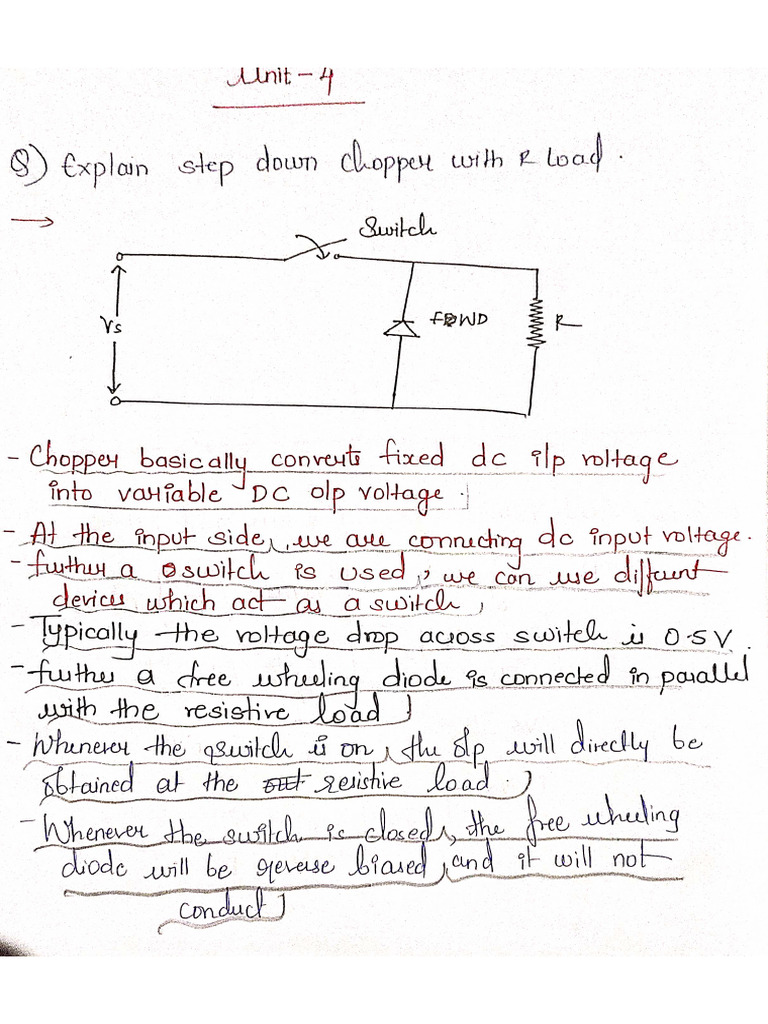 Unit - 4
Q) Explain step down chopper with R load.
→
Switch
Vs
FDWD
R
- Chopper basically converts fixed dc i/p voltage
into variable DC o/p voltage.
- At the input side, we are connecting dc input voltage.
- further a switch is used, we can use diffent
devices which act as a switch,
- Typically the voltage drop across switch is 0.5V.
- further a free wheeling diode is connected in parallel
with the resistive load
- Whenever the switch is on, the o/p will directly be
obtained at the resistive load.
- Whenever the switch is closed, the free wheeling
diode will be reverse biased, and it will not
conduct